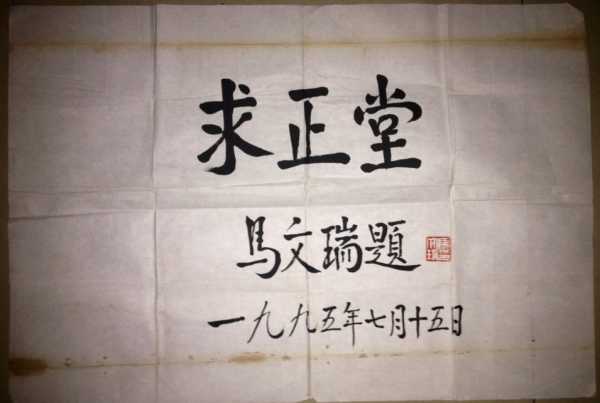 求正堂
馬文瑞題
一九九五年七月十五日